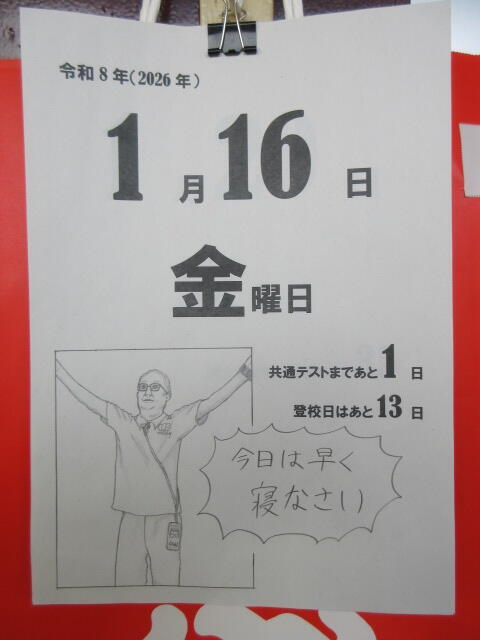 令和8年(2026年)
1月16日
金曜日
共通テストまであと1日
登校日はあと13日
今日は早く
寝なさい